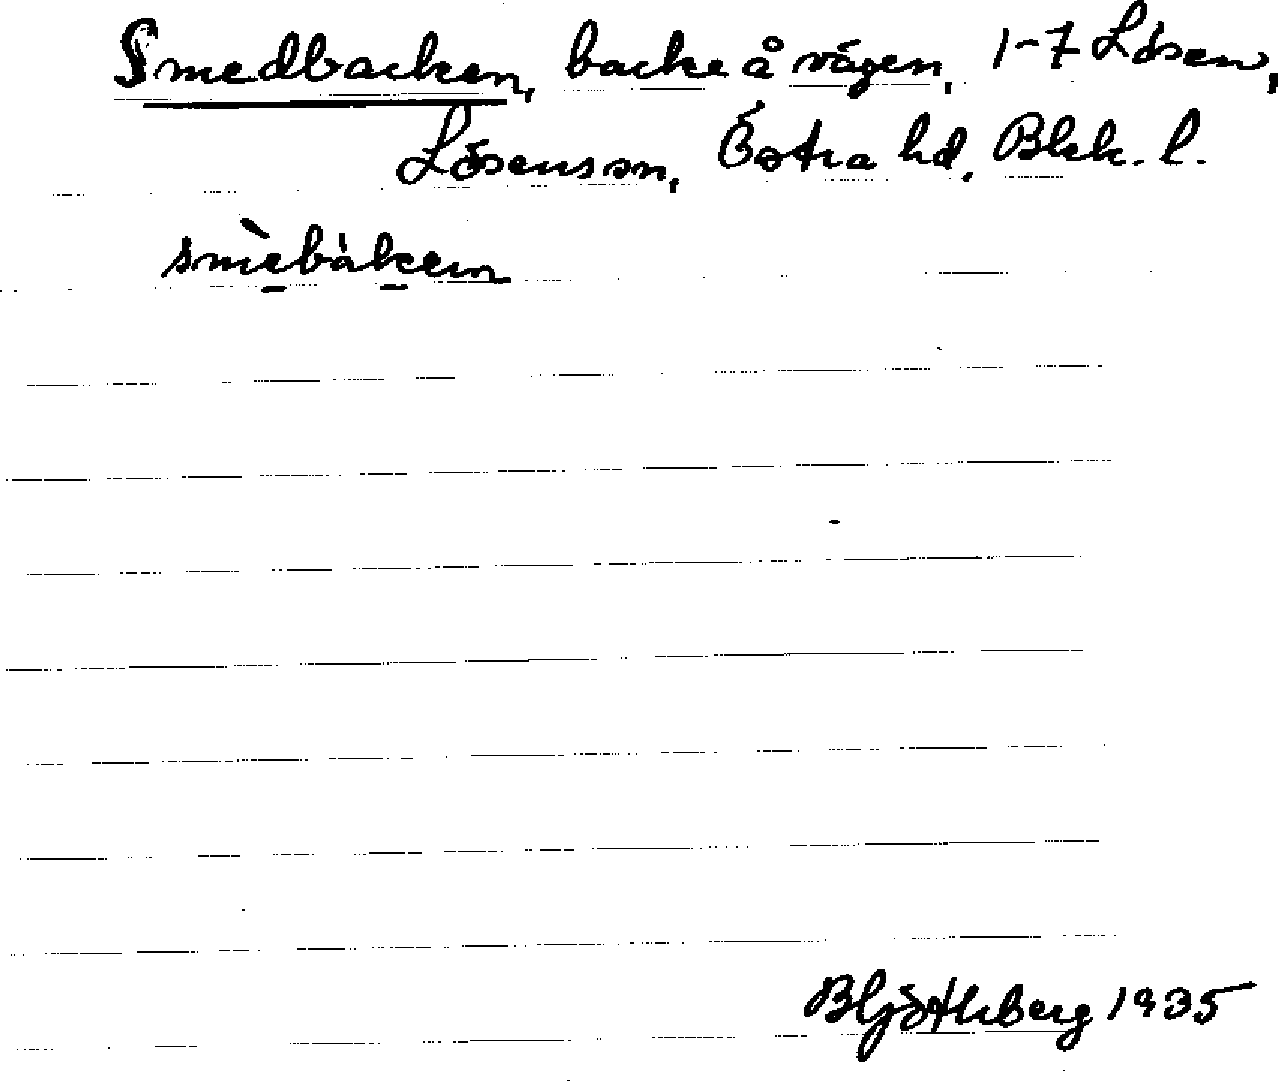 Smedbacken, backe å vägen, 1-7 Lösen,
Lösens sn, Östra hd, Blek. l.
smèbàken
1935